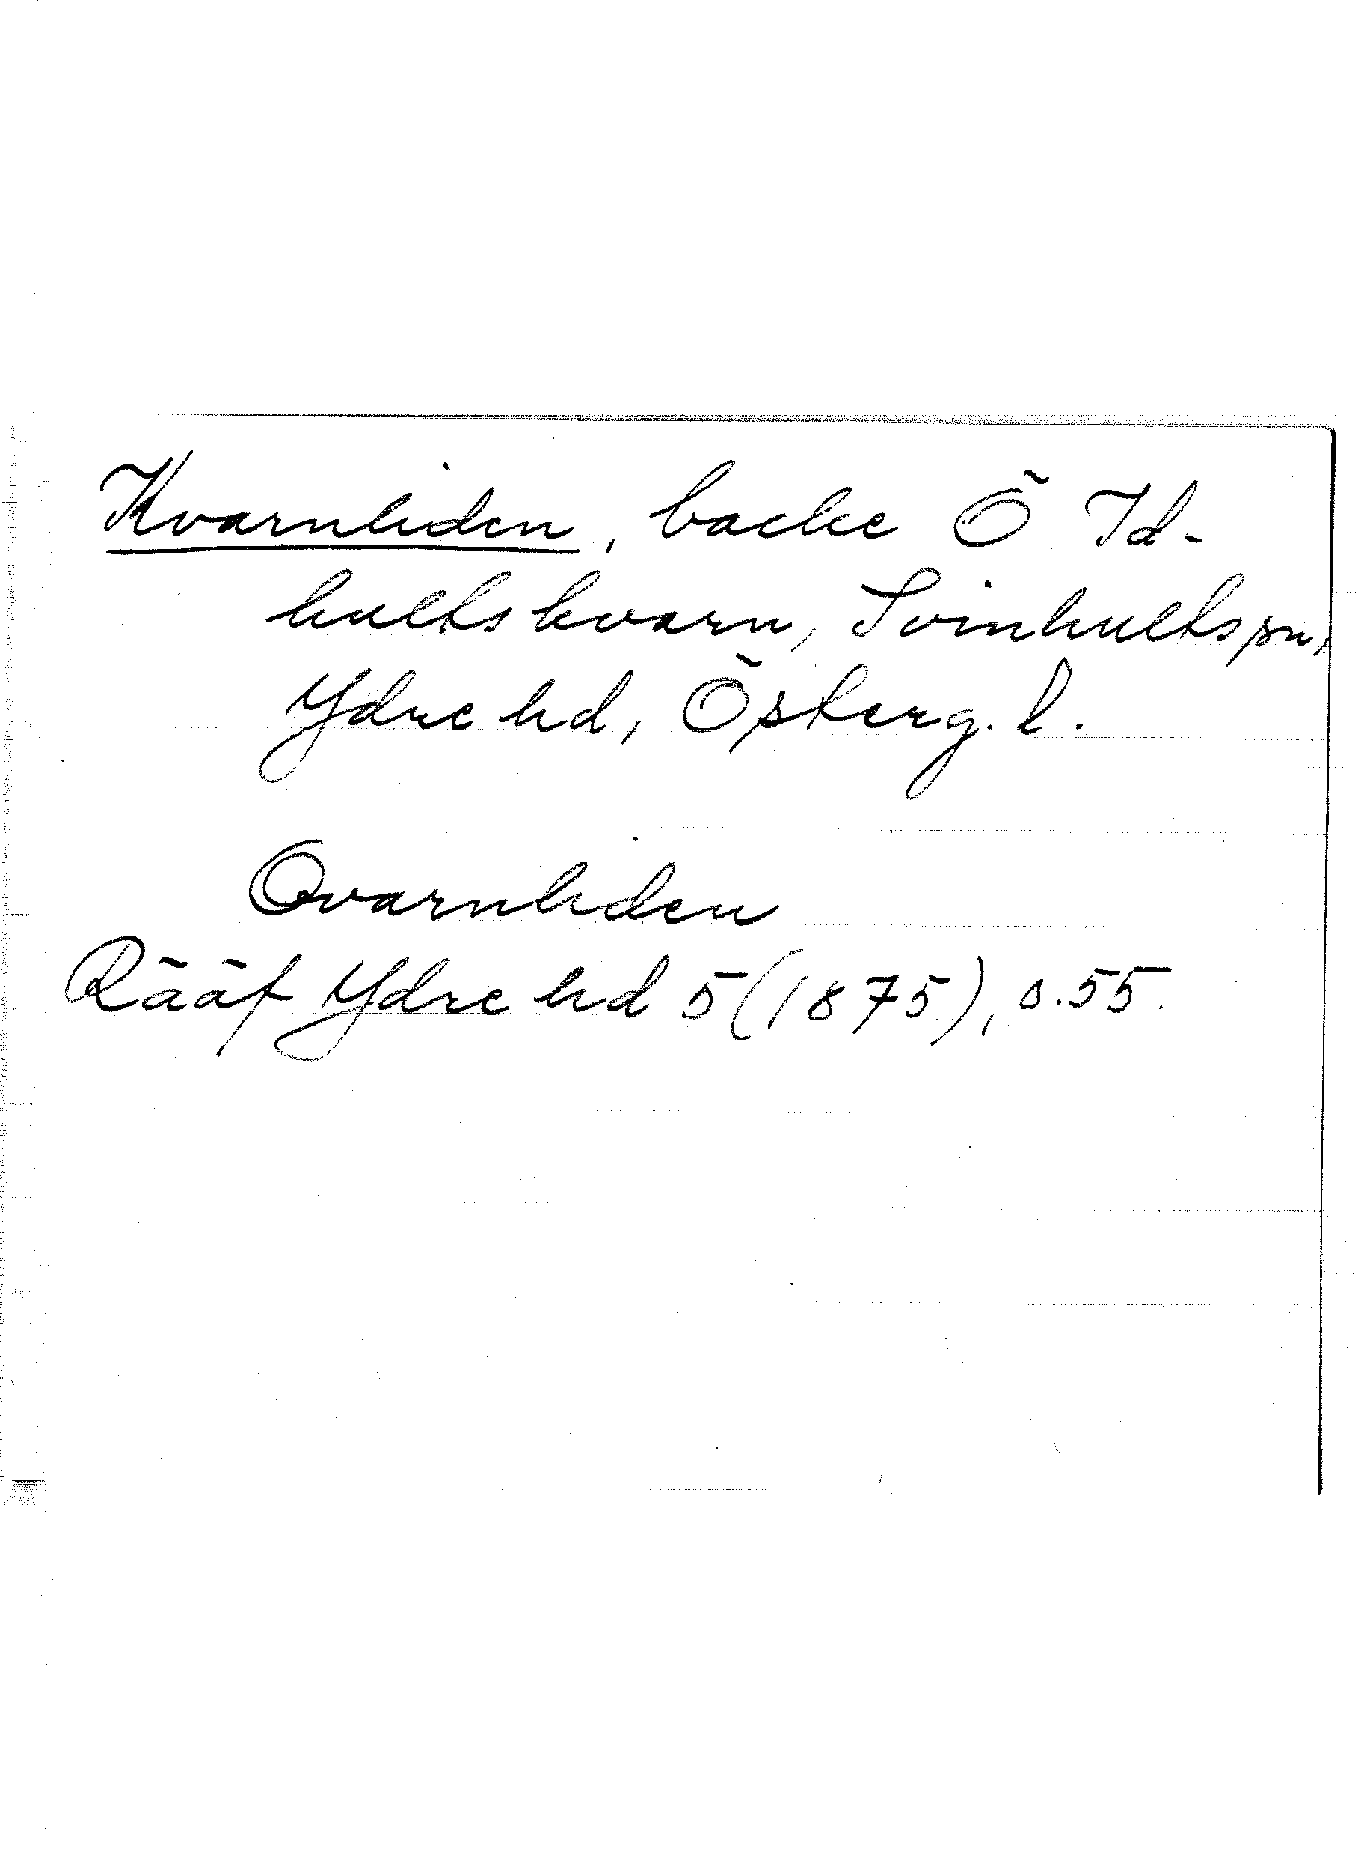 Kvarnliden, backe Ö Id-
hultskvarn, Svinhults sn,
Ydre hd, Österg. l.
Qvarnliden
Rääf Ydre hd 5 (1875), s. 55.